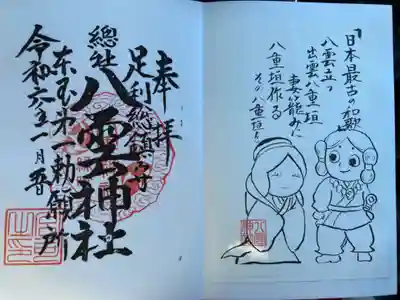 奉拝
足利総鎮守
總社
八雲神社
東国第一勅願所
令和六年一月吉日
「日本最古の和歌」
八雲立つ
出雲八重垣
妻籠みに
八重垣作る
その八重垣を